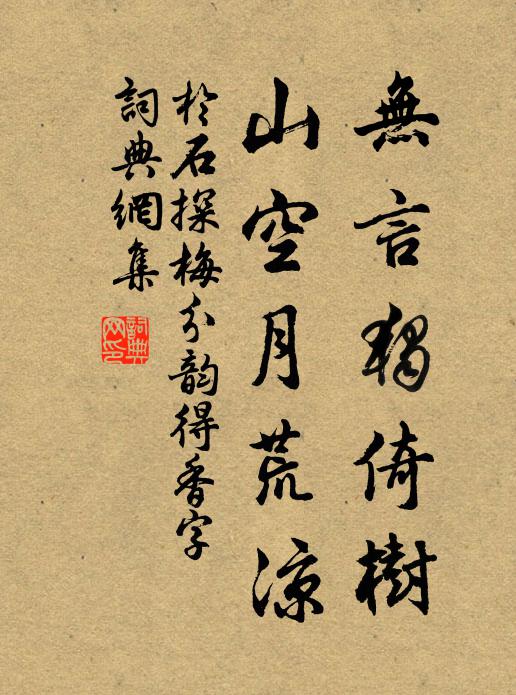 無言獨倚樹
山空月荒涼
於石探梅分韻得香字
詞典網集
詞典網印